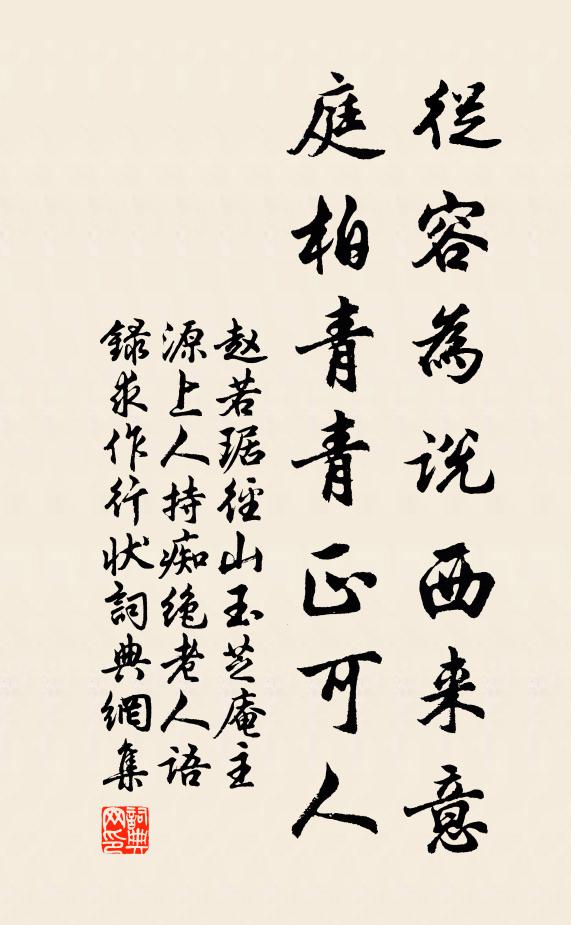 從容為說西来意
庭柏青青正可人
赵若琚徑山玉芝庵主
源上人持痴绝老人语
録求作行状詞典網集
詞典
网印